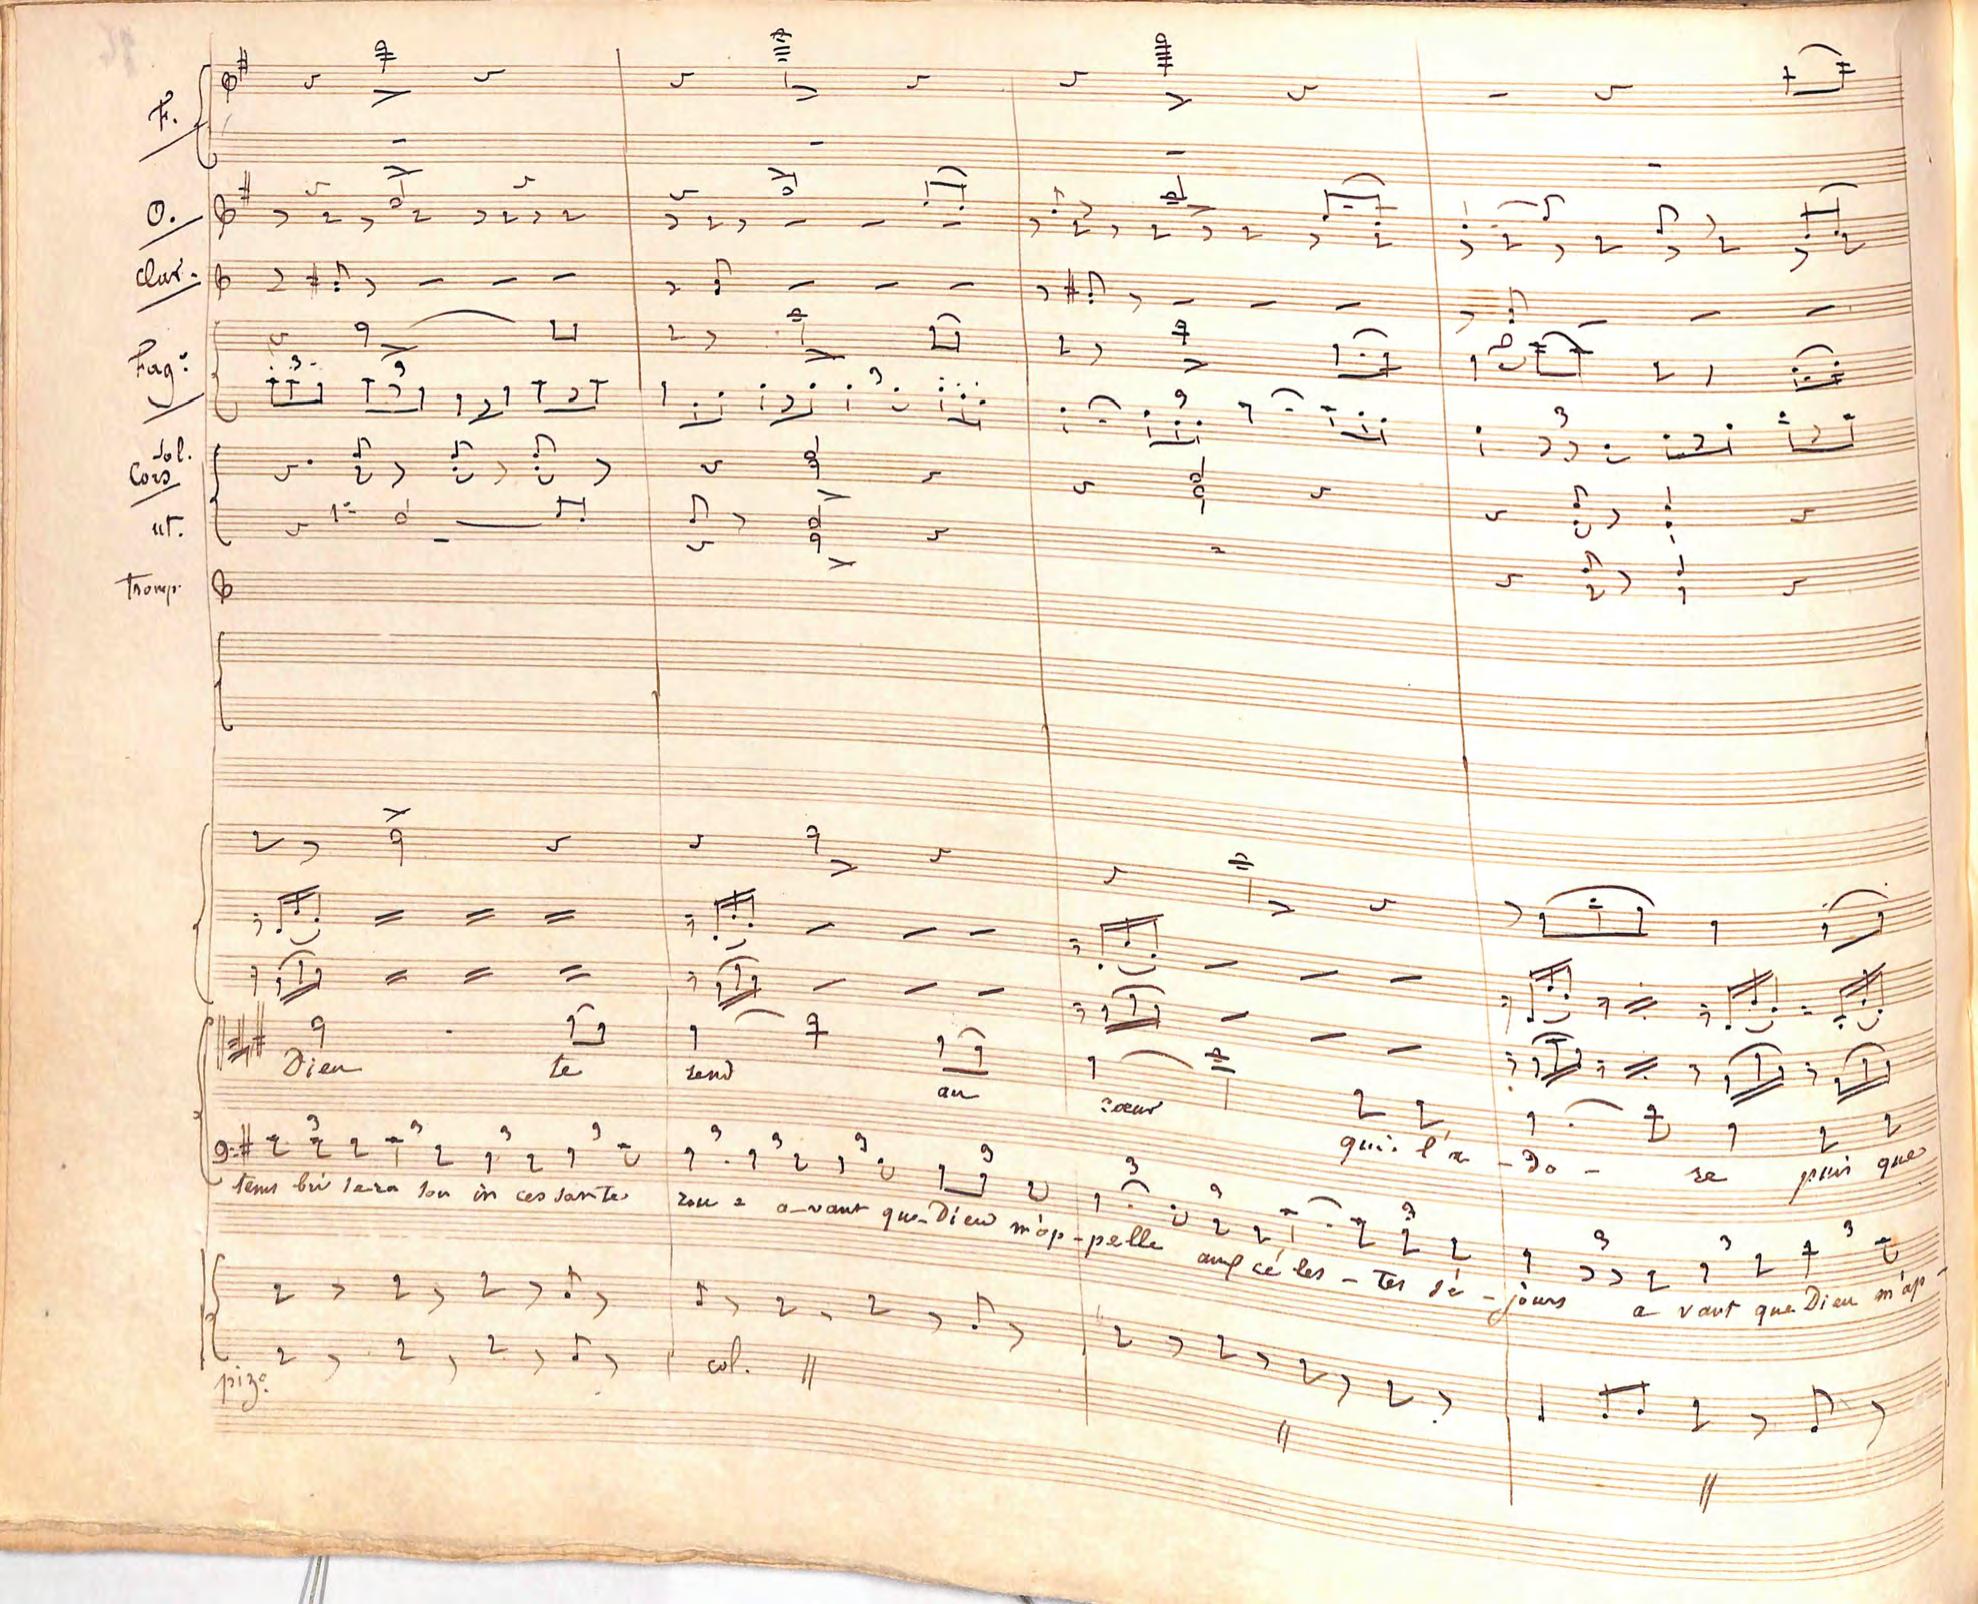 F.
O.
Clar.
Fag:
Sol.
Cors
ut.
Tromp.
Dieu te rend au cœur qui l'a - do - re puis que
tems bri sera son in ces sante roue avant que Dieu m'ap - pelle aux cé les - tes sé - jours a vant que Dieu m'ap -
col.
pizo.